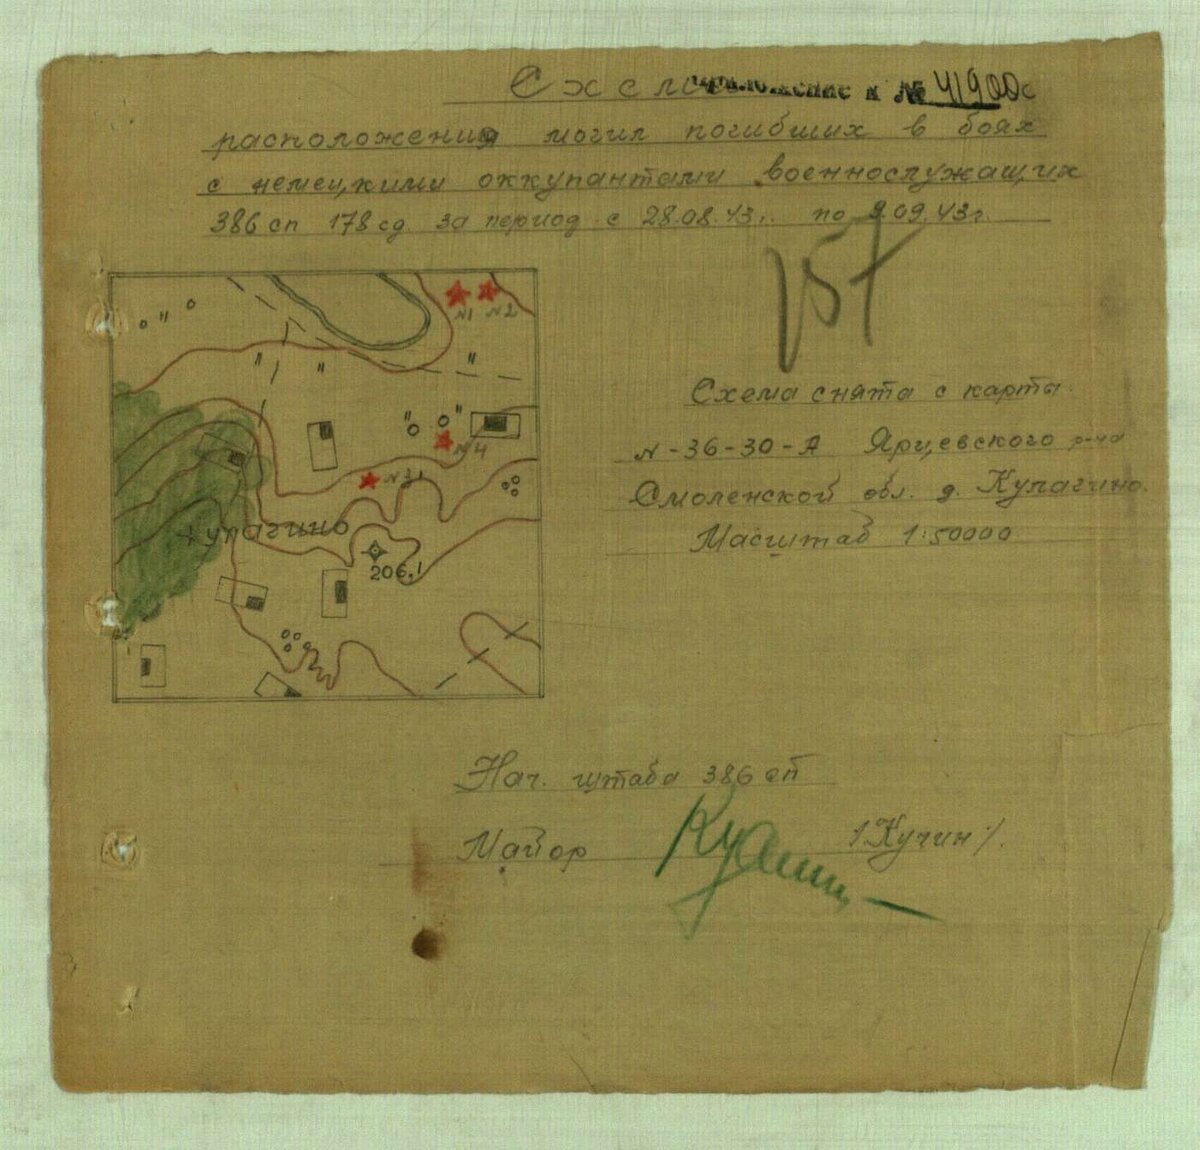 Схема
приложение к № 41900с
расположения могил погибших в боях
с немецкими оккупантами военнослужащих
386 сп 178 сд за период с 28.08.43г. по 9.09.43г.
157
№1 №2
№4
№3
Кулагино
206.1
Схема снята с карты
N-36-30-А Ярцевского р-на
Смоленской обл. д. Кулагино.
Масштаб 1:50000
Нач. штаба 386 сп
Майор /Кучин/.